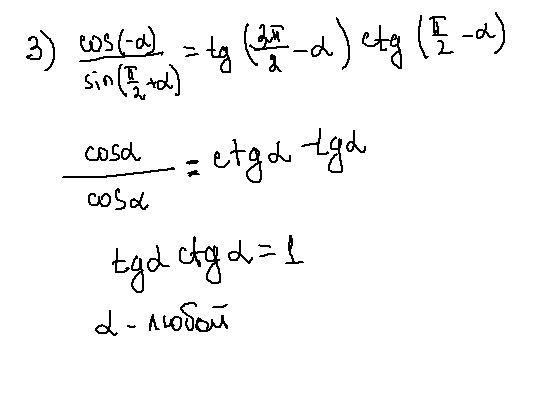 3) cos(-α)/sin(π/2+α) = tg(3π/2-α) ctg(π/2-α)
cosα/cosα = ctgα · tgα
tgα ctgα = 1
α - любой